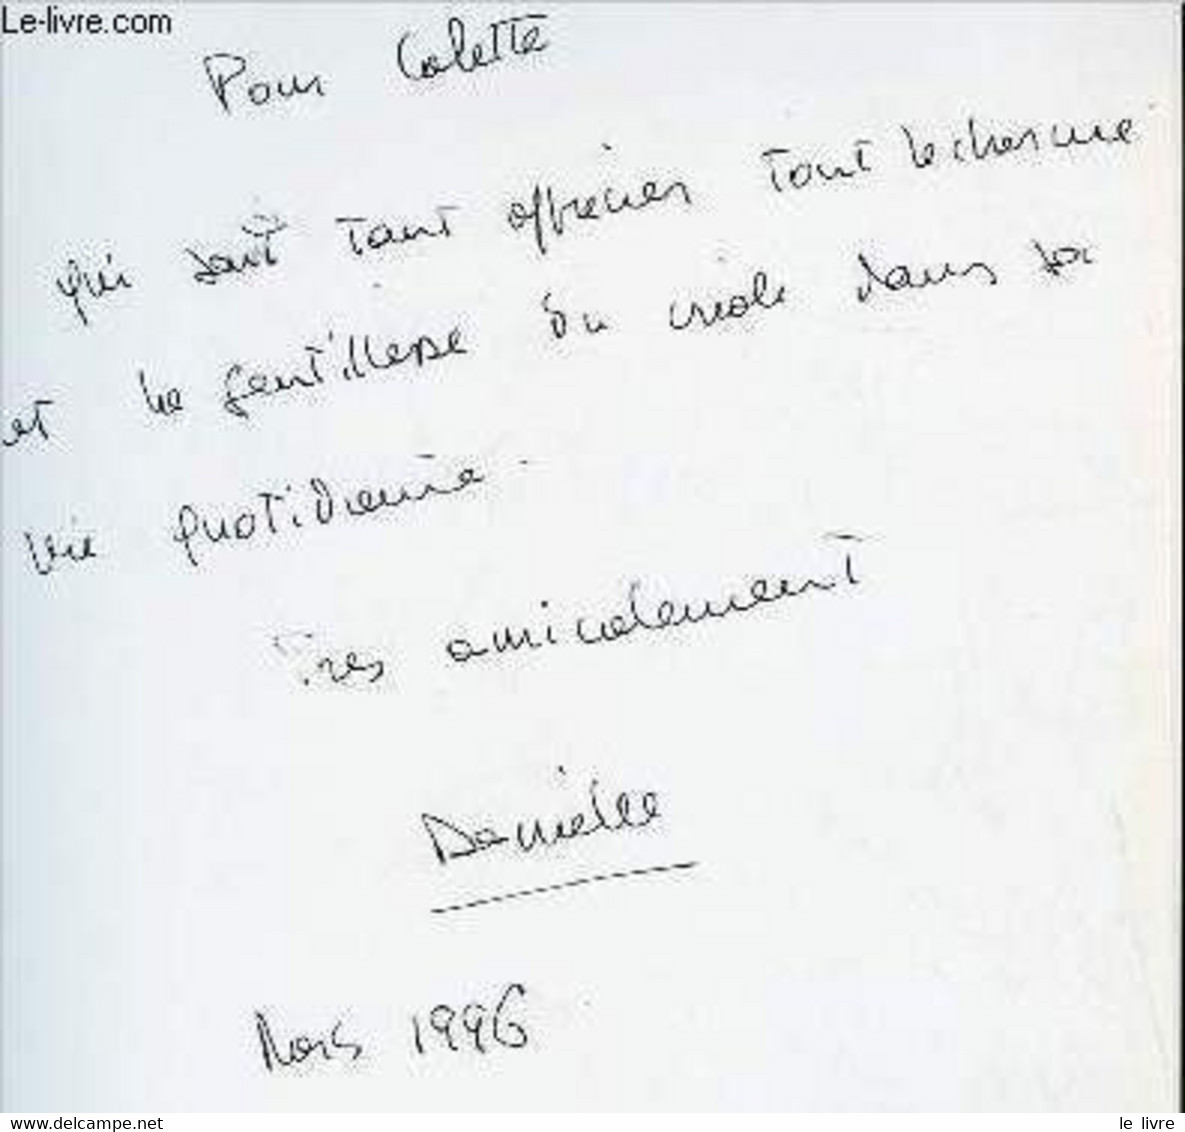 Le-livre.com
Pour Colette
qui sait tant apprécier tout le charme
et la gentillesse du créole dans sa
vie quotidienne.
Très amicalement
Danielle
Mars 1996
www.delcampe.net
le livre